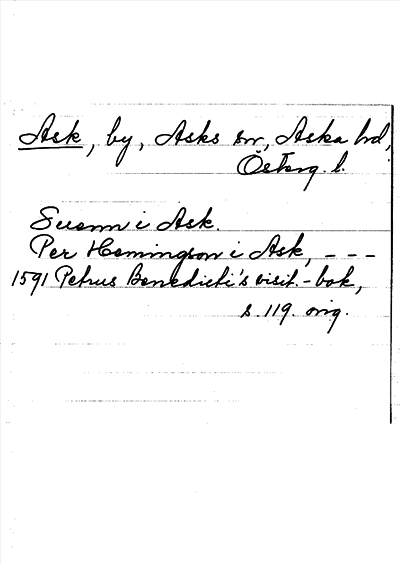 Ask, by, Asks sn, Aska hd,
Österg. l.
Suenn i Ask.
Per Hemingson i Ask, - - -
1591 Petrus Benedicti's visit.-bok,
s. 119. orig.